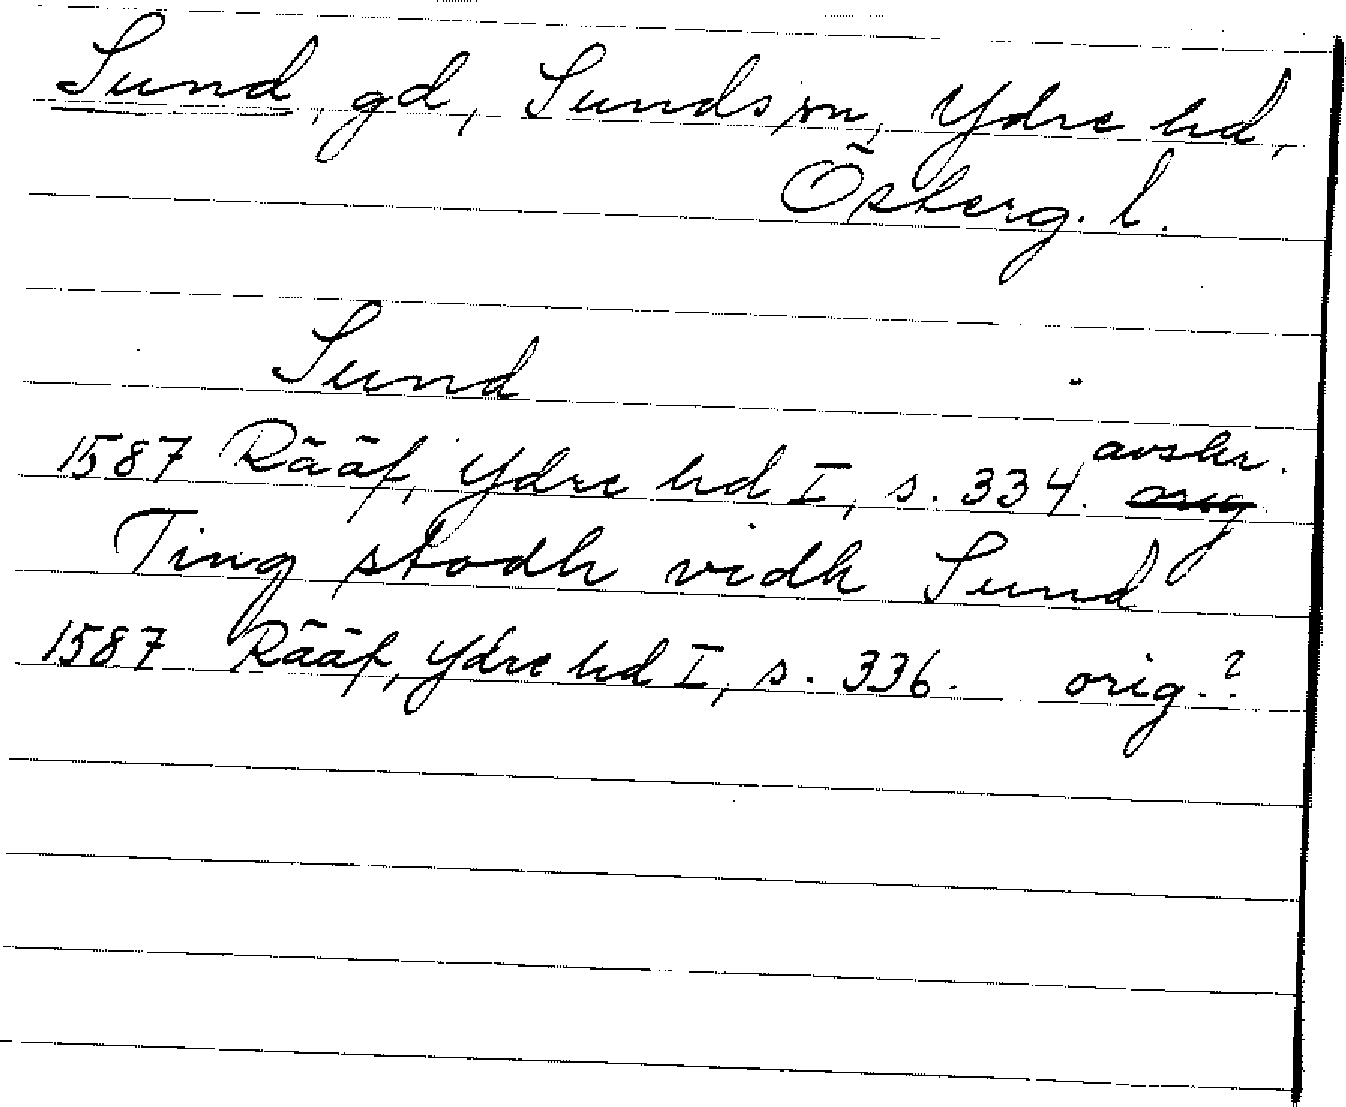 Sund, gd, Sunds sn, Ydre hd,
Österg. l.
Sund
1587 Rääf, Ydre hd I, s. 334. avskr.
Ting stodh vidh Sund
1587 Rääf, Ydre hd I, s. 336. orig.?